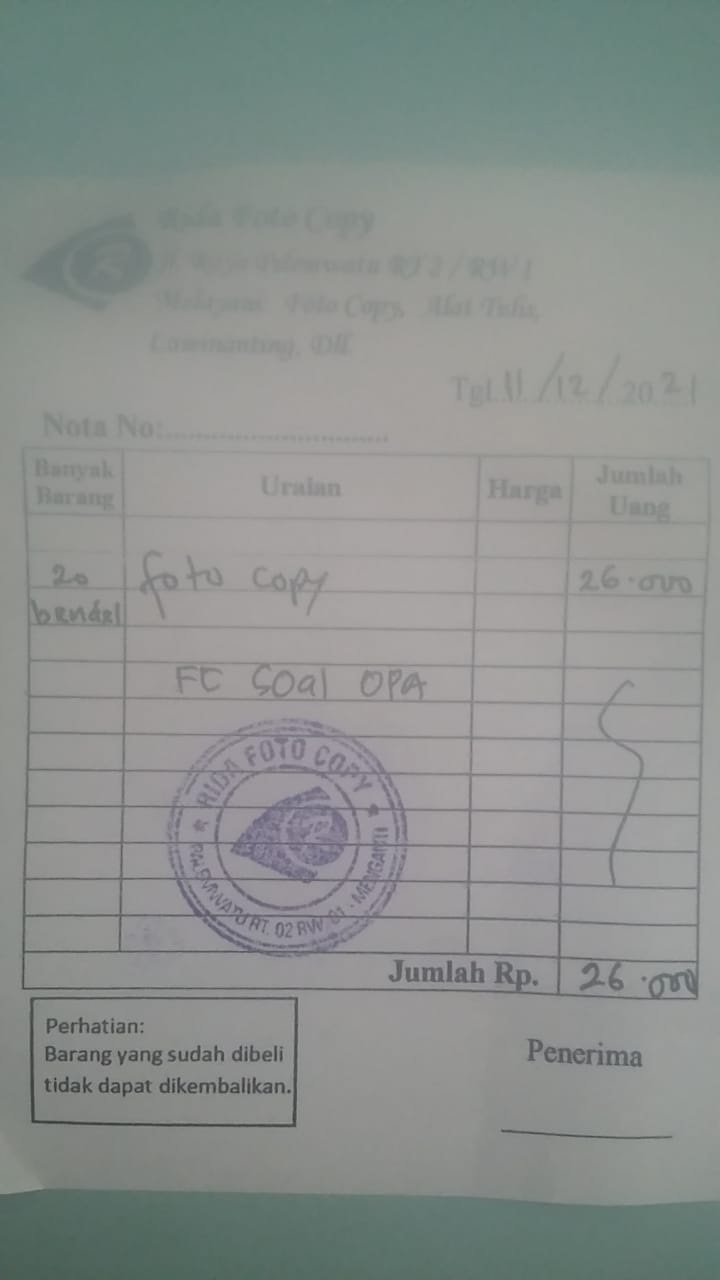 Rida Foto Copy
Jl. Raya Palemwatu RT 2 / RW 1
Melayani Foto Copy, Alat Tulis,
DII
Tgl. 11/12/2021
Nota No:
Banyak Barang Uraian Harga Jumlah Uang
20 bendel foto copy 26.000
FC Soal OPA
RIDA FOTO COPY
PALEMWATU RT. 02 RW. 01 - MENGANTI
Jumlah Rp. 26.000
Perhatian:
Barang yang sudah dibeli
tidak dapat dikembalikan.
Penerima